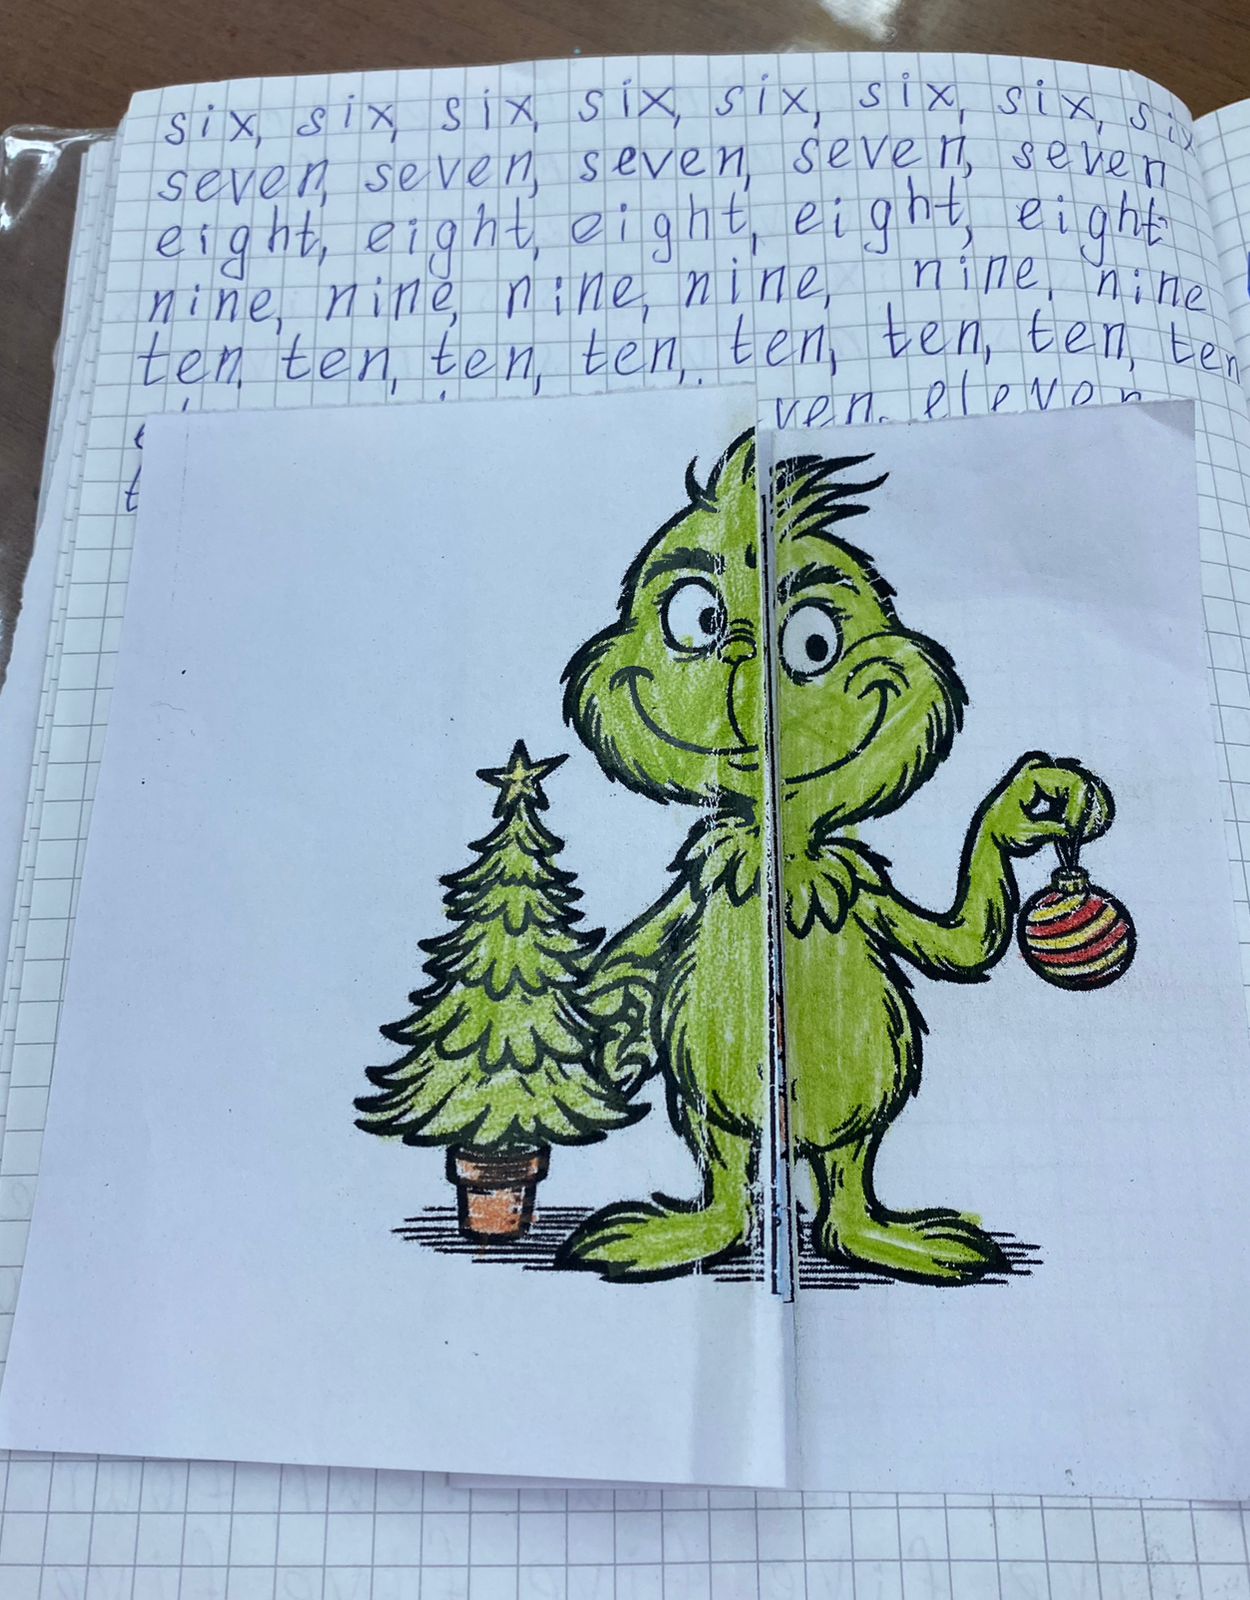 six, six, six, six, six, six, six, six
seven, seven, seven, seven, seven
eight, eight, eight, eight, eight
nine, nine, nine, nine, nine, nine
ten, ten, ten, ten, ten, ten, ten, ten
eleven